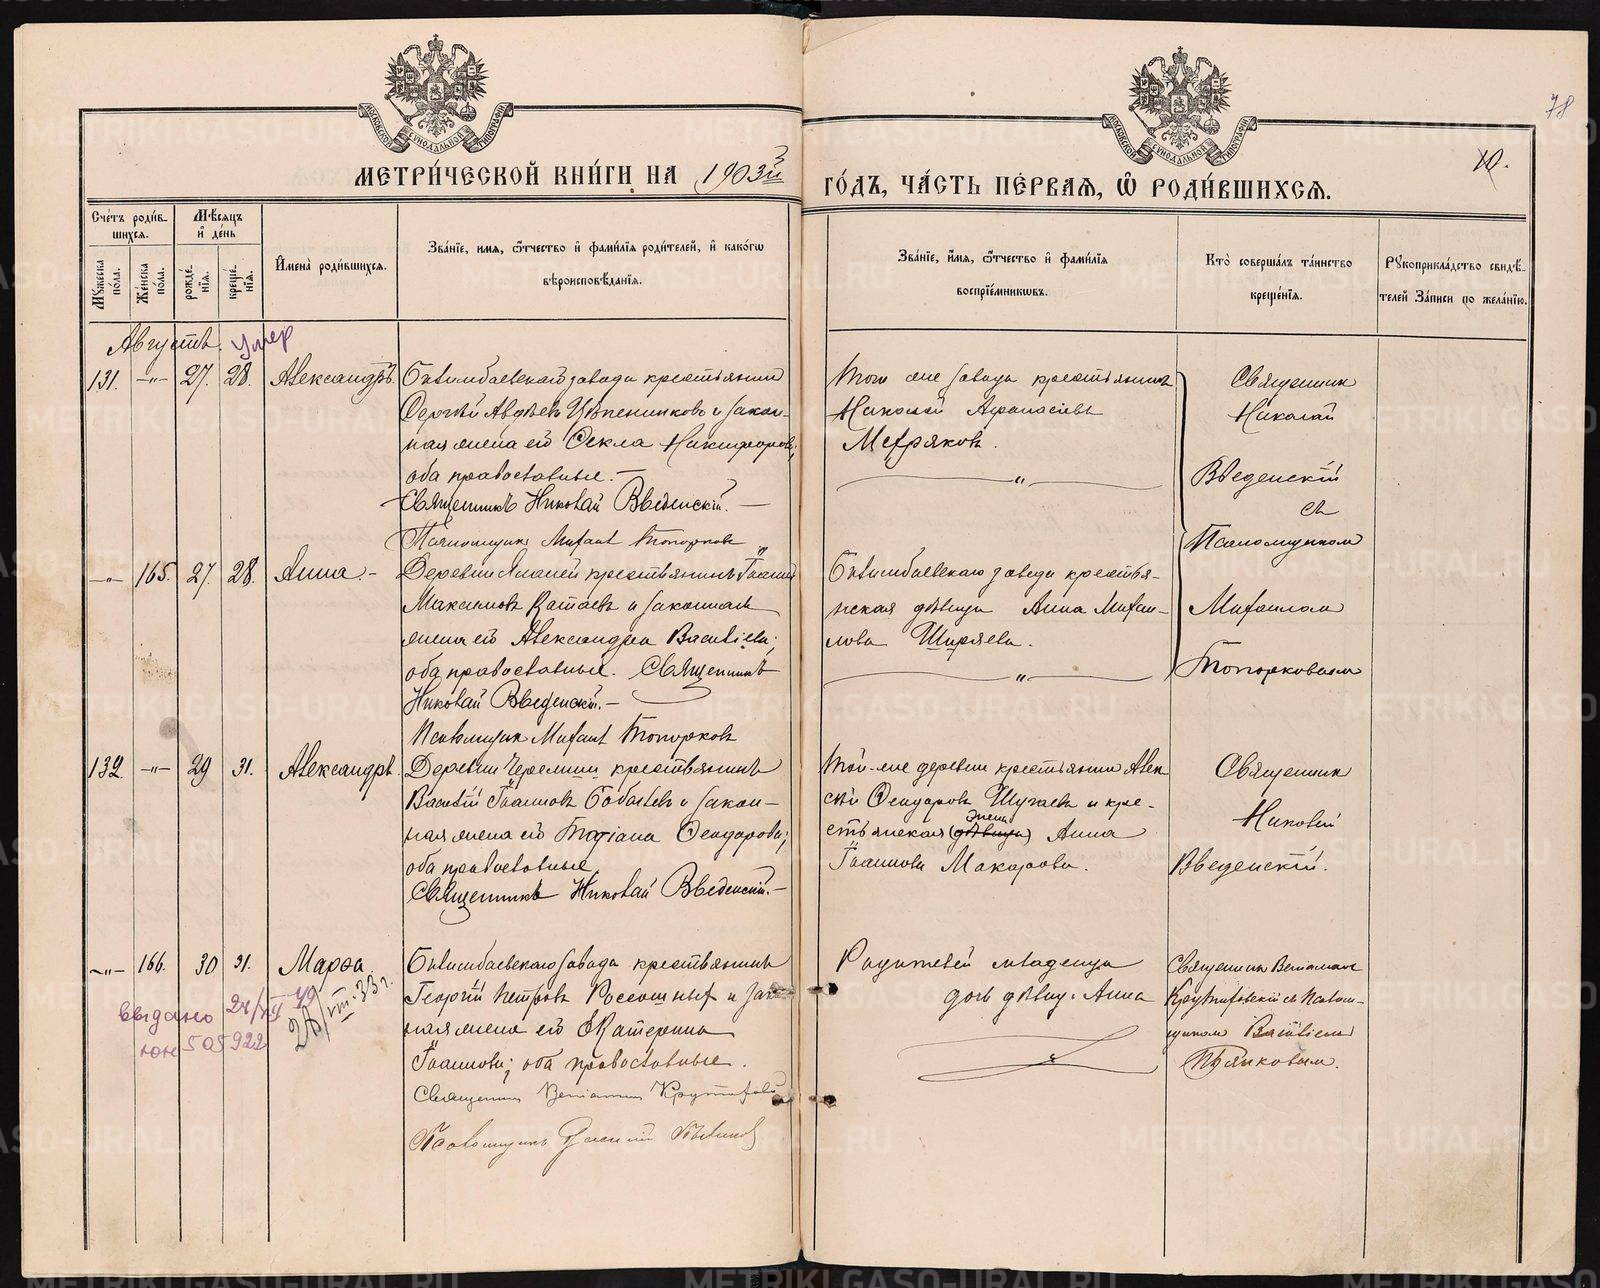 78
10.
МЕТРИ́ЧЕСКОЙ КНИ́ГИ НА 1903й
ГО́ДЪ, ЧА́СТЬ ПЕ́РВАЯ, Ѽ РОДИ́ВШИХСЯ.
Сче́тъ роди́в-
шихся.
Мужеска пола.
Же́нска по́ла.
Мѣ́сяцъ
и҆ де́нь
рожде́нїя.
креще́нїя.
И҆мена̀ роди́вшихся.
Зва́нїе, имя, ѻ҆́тчество и҆ фами́лїя роди́телей, и҆ како́гѡ
вѣроисповѣ́данїя.
Зва́нїе, и҆́мя, ѻ҆́тчество и҆ фами́лїя
воспрїе́мникѡвъ.
Кто̀ соверша́лъ та́инство
креще́нїя.
Рꙋкоприкла́дство свидѣ́-
телей За́писи по жела́нїю.
Августъ. умер
131. -"- 27. 28. Александръ.
Билимбаевскаго завода крестьянин
Сергѣй Авдѣев и закон-
ная жена его Ѳекла Никифорова,
оба православные.
Священникъ Николай Введенскій.
Псаломщик Михаил Топорков
Того же завода крестьянинъ
Николай Афанасіевъ
Мезряков.
Священник
Николай
Введенскій
съ
Псаломщиком
Михаилом
Топорковым
-"- 165. 27. 28. Анна.
Деревни крестьянинъ Іоанн
Максимовъ Катаевъ и законная
жена его Александра Васильева;
оба православные. Священникъ
Николай Введенскій.
Псаломщик Михаил Топорков
Билимбаевскаго завода крестья-
нская дѣвица Анна Михаи-
лова Ширяева.
132. -"- 29 31. Александръ.
Деревни Черемши крестьянинъ
Василій Іоанновъ и закон-
ная жена его Татіана Ѳеодорова;
оба православные
Священникъ Николай Введенскій.
Той-же деревни крестьянин Алек
сѣй Ѳеодоровъ и кре-
стьянская (дѣвица) жена Анна
Іоаннова Макарова.
Священник
Николай
Введенскій.
-"- 166. 30 31. Марѳа.
Билимбаевскаго завода крестьянинъ
Георгій Петровъ Россошных и зако
ная жена его Екатерина
Іоаннова; оба православные.
Священник Веніамин
Псаломщикъ Василій
Родителей младенца
дочь дѣвица Анна
Священник Веніамин
съ Псалом-
щиком Василіем
Пьянковым.
выдано 24/XII 49
юн 505922